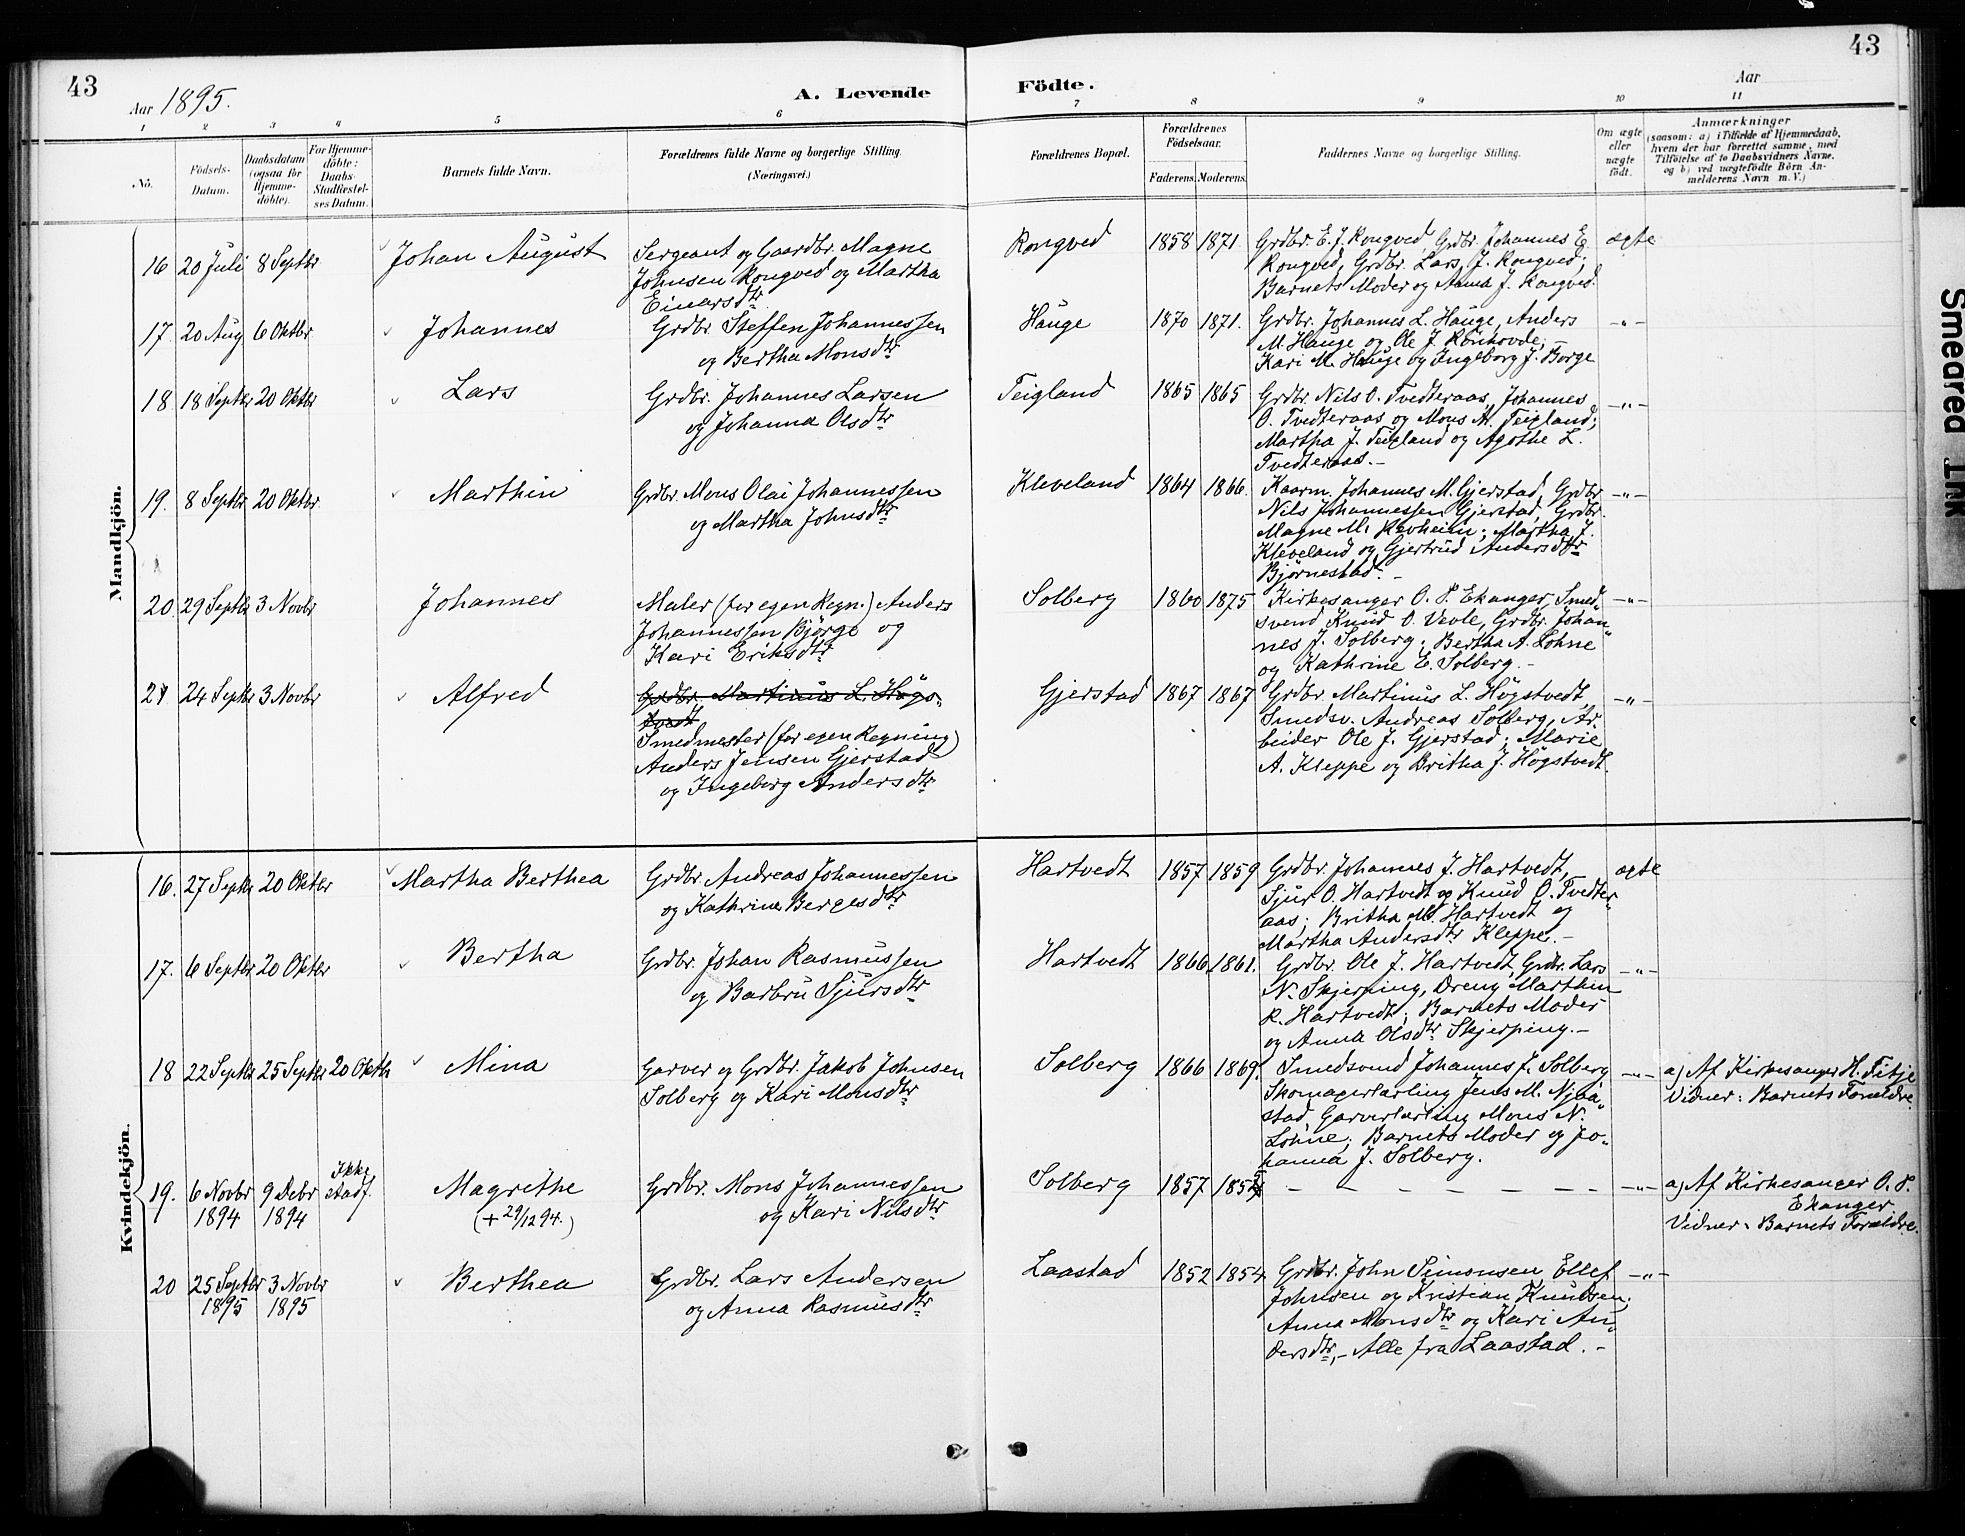 43
43
Aar 1895.
A. Levende
Födte.
Aar
1 2 3 4 5 6 7 8 9 10 11
No.
Födsels-
Datum.
Daabsdatum
(ogsaa for
Hjemme-
döbte).
For Hjemme-
döbte:
Daabs-
Stadfæstel-
ses Datum.
Barnets fulde Navn.
Forældrenes fulde Navne og borgerlige Stilling.
(Næringsvei.)
Forældrenes Bopæl.
Forældrenes
Födselsaar.
Faderens. Moderens.
Faddernes Navne og borgerlige Stilling.
Om ægte
eller
uægte
födt.
Anmærkninger
(saasom: a) i Tilfælde af Hjemmedaab,
hvem der har forrettet samme, med
Tilföielse af to Daabsvidners Navne,
og b) ved uægtefödte Börn An-
melderens Navn m. V.)
Mandkjön.
16 20 Juli 8 Septbr Johan August
Sergeant og Gaardbr. Magne
Johnsen Rongved og Martha
Einarsdtr
Rongved 1858 1871
Grdbr. E. J. Rongved, Grdbr. Johannes E.
Rongved, Grdbr. Lars J. Rongved;
Barnets Moder og Anna J. Rongved.
ægte
17. 20 Aug 6 Oktbr Johannes
Grdbr. Steffen Johannessen
og Bertha Monsdtr
Hauge 1870 1871.
Grdbr. Johannes L. Hauge, Anders
M. Hauge og Ole J. Rönhovde; –
Kari M. Hauge og Ingeborg J. Borge
–„–
18 18 Septbr 20 Oktbr Lars
Grdbr. Johannes Larsen
og Johanna Olsdtr
Teigland 1865 1865
Grdbr. Nils O. Tvedteraas, Johannes
O. Tvedteraas og Mons M. Teigland;
Martha J. Teigland og Agothe L.
Tvedteraas. –
–„–
19. 8 Septbr 20 Oktbr Marthin
Grdbr. Mons Olai Johannessen
og Martha Johnsdtr
Kleveland 1864 1866.
Kaarm. Johannes M. Gjerstad, Grdbr.
Nils Johannessen Gjerstad, Grdbr.
Magne M. Revheim; Martha J.
Kleveland og Gjertrud Andersdtr
Björnestad. –
–„–
20. 29 Septbr 3 Novbr Johannes
Maler (for egen Regn.) Anders
Johannessen Bjørge og
Kari Eriksdtr
Solberg 1860 1875
Kirkesanger O. P. Ekanger, Smed-
svend Knud O. Vevle, Grdbr. Johan-
nes J. Solberg; Bertha A. Lohne
og Kathrine E. Solberg. –
–„–
21 24 Septbr 3 Novbr Alfred
Grdbr. Martinus L. Høgs-
tvedt
Smedmester (for egen Regning)
Anders Jensen Gjerstad
og Ingeborg Andersdtr
Gjerstad 1867 1867
Grdbr. Martinus L. Högstvedt,
Smedsv. Andreas Solberg, Ar-
beider Ole J. Gjerstad; Marie
A. Kleppe og Britha J. Högstvedt.
–„–
Kvindekjön.
16. 27 Septbr 20 Oktbr Martha Berthea
Grdbr. Andreas Johannessen
og Kathrine Bergesdtr
Hartvedt 1857 1859
Grdbr. Johannes J. Hartvedt,
Sjur O. Hartvedt og Knud O. Tvedter-
aas; Britha M. Hartvedt og
Martha Andersdtr Kleppe. –
ægte
17. 6 Septbr 20 Oktbr Bertha
Grdbr. Johan Rasmussen
og Barbru Sjursdtr
Hartvedt 1866 1861.
Grdbr. Ole J. Hartvedt, Grdbr. Lars
N. Skjerping, Dreng Marthin
R. Hartvedt; Barnets Moder
og Anna Olsdtr Skjerping. –
–„–
18 22 Septbr 25 Septbr 20 Oktbr Mina
Garver og Grdbr. Jakob Johnsen
Solberg og Kari Monsdtr
Solberg 1866 1869.
Smedsvend Johannes J. Solberg
Skomagerlærling Jens M. Njaa-
stad, Garverlærling Mons N.
Lohne; Barnets Moder og Jo-
hanna J. Solberg.
–„–
a) Af Kirkesanger H. Fitje
Vidner: Barnets Forældre.
19. 6 Novbr 1894 9 Debr 1894 Ikke stadf. Magrethe
(+ 29/12 94.)
Grdbr. Mons Johannessen
og Kari Nilsdtr
Solberg 1857
– – – – – – – –
–„–
a) Af Kirkesanger O. P.
Ekanger
Vidner: Barnets Forældre.
20 25 Septbr 1895 3 Novbr 1895 Berthea
Grdbr. Lars Andersen
og Anna Rasmusdtr
Laastad 1852 1854
Grdbr. John Simonsen, Ellef
Johnsen og Kristian Knudsen;
Anna Monsdtr og Kari An-
dersdtr, – Alle fra Laastad. –
–„–
Smeared Ink